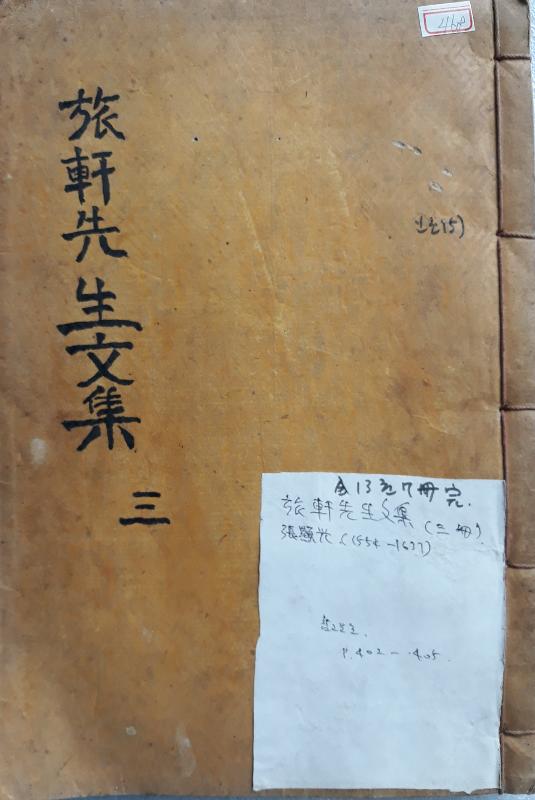 旅軒先生文集
三
468
全13권7冊 完.
旅軒先生文集 (三冊)
張顯光 (1554-1637)
P. 402 - 405.